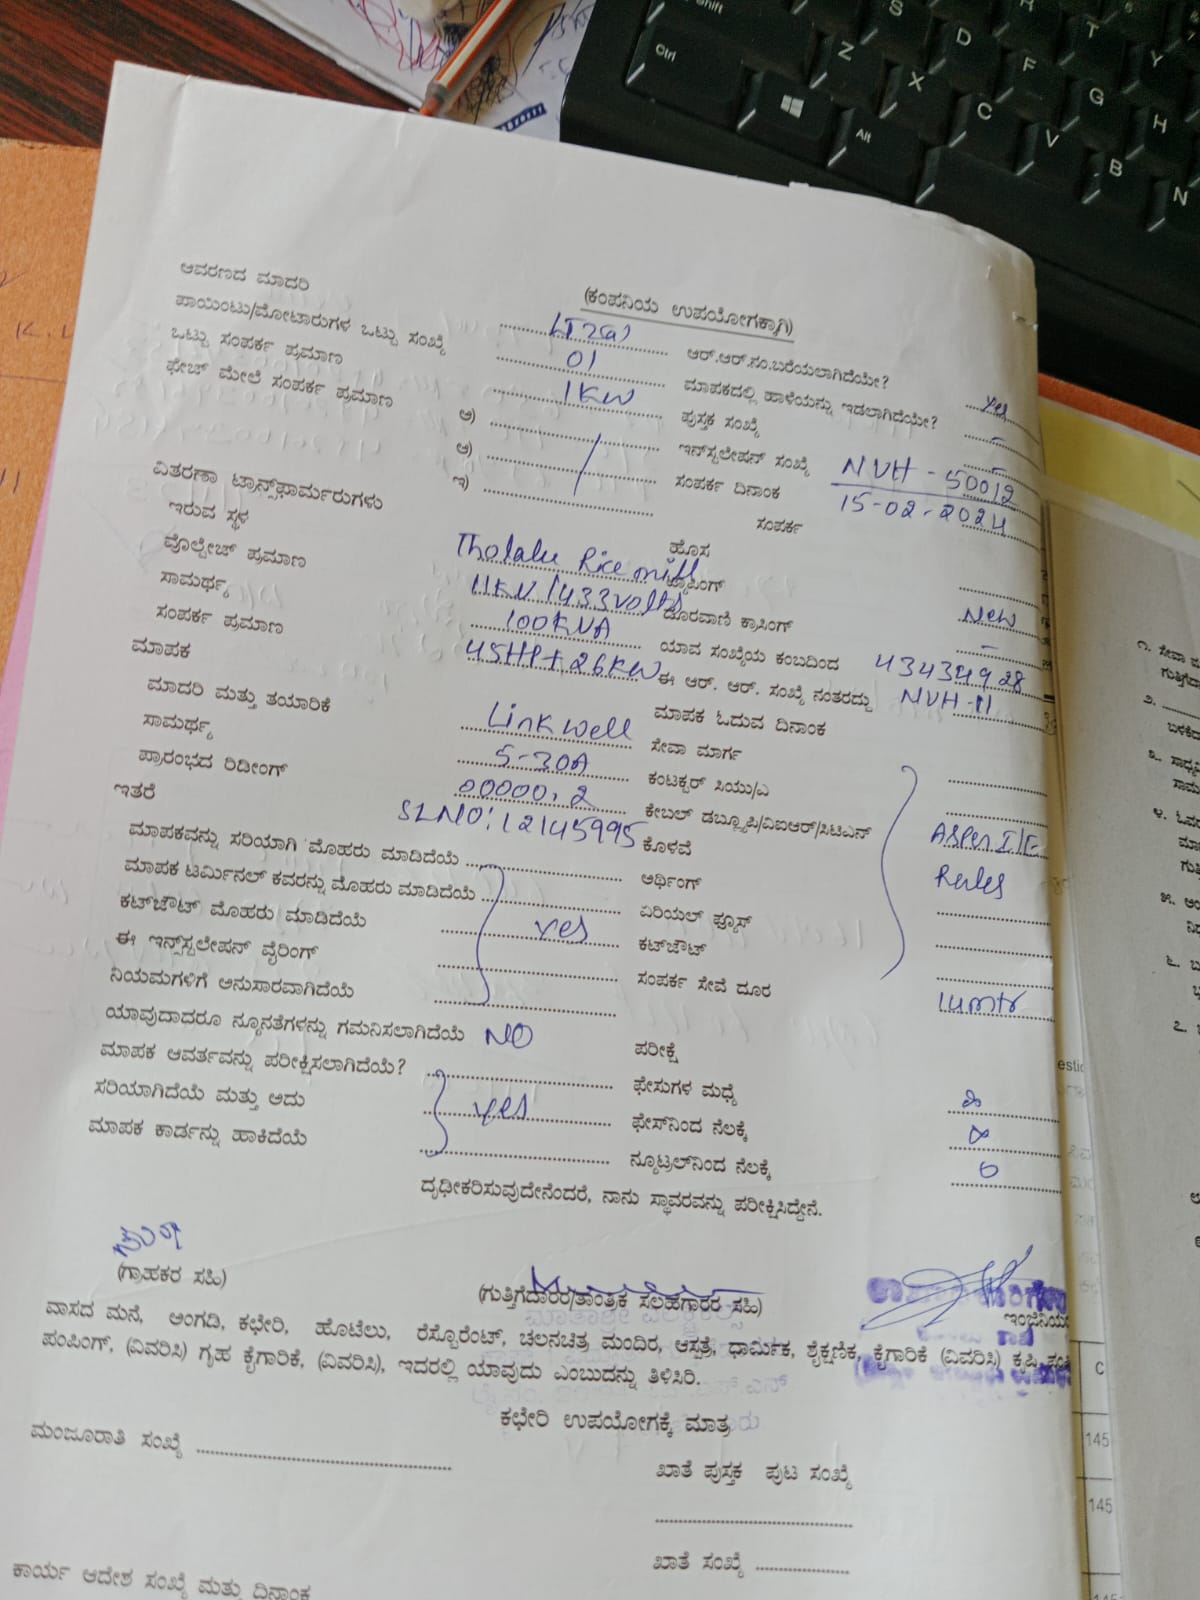 (ಕಂಪನಿಯ ಉಪಯೋಗಕ್ಕಾಗಿ)
ಆವರಣದ ಮಾದರಿ LT2(a)
ಪಾಯಿಂಟು/ಮೋಟಾರುಗಳ ಒಟ್ಟು ಸಂಖ್ಯೆ 01
ಒಟ್ಟು ಸಂಪರ್ಕ ಪ್ರಮಾಣ 1KW
ಫೇಜ್ ಮೇಲೆ ಸಂಪರ್ಕ ಪ್ರಮಾಣ ಅ)
ಆ)
ಇ)
ವಿತರಣಾ ಟ್ರಾನ್ಸ್‌ಫಾರ್ಮರುಗಳು
ಇರುವ ಸ್ಥಳ Tholalu Rice mill
ವೊಲ್ಟೇಜ್ ಪ್ರಮಾಣ 11KV/433volts
ಸಾಮರ್ಥ್ಯ 100KVA
ಸಂಪರ್ಕ ಪ್ರಮಾಣ 45HP+26KW
ಮಾಪಕ
ಮಾದರಿ ಮತ್ತು ತಯಾರಿಕೆ Linkwell
ಸಾಮರ್ಥ್ಯ 5-30A
ಪ್ರಾರಂಭದ ರಿಡೀಂಗ್ 00000.2
ಇತರೆ SLNO:12145995
ಮಾಪಕವನ್ನು ಸರಿಯಾಗಿ ಮೊಹರು ಮಾಡಿದೆಯೆ
ಮಾಪಕ ಟರ್ಮಿನಲ್ ಕವರನ್ನು ಮೊಹರು ಮಾಡಿದೆಯೆ
ಕಟ್‌ಔಟ್ ಮೊಹರು ಮಾಡಿದೆಯೆ yes
ಈ ಇನ್ಸ್‌ಸ್ಟಲೇಷನ್ ವೈರಿಂಗ್
ನಿಯಮಗಳಿಗೆ ಅನುಸಾರವಾಗಿದೆಯೆ
ಯಾವುದಾದರೂ ನ್ಯೂನತೆಗಳನ್ನು ಗಮನಿಸಲಾಗಿದೆಯೆ NO
ಮಾಪಕ ಆವರ್ತವನ್ನು ಪರೀಕ್ಷಿಸಲಾಗಿದೆಯೆ?
ಸರಿಯಾಗಿದೆಯೆ ಮತ್ತು ಅದು yes
ಮಾಪಕ ಕಾರ್ಡನ್ನು ಹಾಕಿದೆಯೆ
ಆರ್.ಆರ್.ನಂ.ಬರೆಯಲಾಗಿದೆಯೇ? yes
ಮಾಪಕದಲ್ಲಿ ಹಾಳೆಯನ್ನು ಇಡಲಾಗಿದೆಯೇ? -
ಪುಸ್ತಕ ಸಂಖ್ಯೆ -
ಇನ್‌ಸ್ಟಲೇಷನ್ ಸಂಖ್ಯೆ NVH-50012
ಸಂಪರ್ಕ ದಿನಾಂಕ 15-02-2024
ಸಂಪರ್ಕ
ಹೊಸ New
ಟ್ಯಾಪಿಂಗ್ -
ದೂರವಾಣಿ ಕ್ರಾಸಿಂಗ್
ಯಾವ ಸಂಖ್ಯೆಯ ಕಂಬದಿಂದ 43434928
ಈ ಆರ್. ಆರ್. ಸಂಖ್ಯೆ ನಂತರದ್ದು NVH-11
ಮಾಪಕ ಓದುವ ದಿನಾಂಕ
ಸೇವಾ ಮಾರ್ಗ
ಕಂಟಕ್ಟರ್ ಸಿಯು/ಎ
ಕೇಬಲ್ ಡಬ್ಲ್ಯೂಪಿ/ವಿಐಆರ್/ಸಿಟಿಎಸ್
ಕೊಳವೆ
ಅರ್ಥಿಂಗ್ As Per I/E
ಏರಿಯಲ್ ಫ್ಯೂಸ್ Rules
ಕಟ್‌ಔಟ್
ಸಂಪರ್ಕ ಸೇವೆ ದೂರ 14mtr
ಪರೀಕ್ಷೆ
ಫೇಸುಗಳ ಮಧ್ಯೆ ∞
ಫೇಸ್‌ನಿಂದ ನೆಲಕ್ಕೆ ∞
ನ್ಯೂಟ್ರಲ್‌ನಿಂದ ನೆಲಕ್ಕೆ 0
ದೃಢೀಕರಿಸುವುದೇನೆಂದರೆ, ನಾನು ಸ್ಥಾವರವನ್ನು ಪರೀಕ್ಷಿಸಿದ್ದೇನೆ.
(ಗ್ರಾಹಕರ ಸಹಿ)
(ಗುತ್ತಿಗೆದಾರರ/ತಾಂತ್ರಿಕ ಸಲಹಗಾರರ ಸಹಿ)
ವಾಸದ ಮನೆ, ಅಂಗಡಿ, ಕಛೇರಿ, ಹೊಟೆಲು, ರೆಸ್ಟೊರೆಂಟ್, ಚಲನಚಿತ್ರ ಮಂದಿರ, ಆಸ್ಪತ್ರೆ, ಧಾರ್ಮಿಕ, ಶೈಕ್ಷಣಿಕ, ಕೈಗಾರಿಕೆ (ವಿವರಿಸಿ) ಕೃಷಿ
ಪಂಪಿಂಗ್, (ವಿವರಿಸಿ) ಗೃಹ ಕೈಗಾರಿಕೆ, (ವಿವರಿಸಿ), ಇದರಲ್ಲಿ ಯಾವುದು ಎಂಬುದನ್ನು ತಿಳಿಸಿರಿ.
ಕಛೇರಿ ಉಪಯೋಗಕ್ಕೆ ಮಾತ್ರ
ಮಂಜೂರಾತಿ ಸಂಖ್ಯೆ
ಖಾತೆ ಪುಸ್ತಕ ಪುಟ ಸಂಖ್ಯೆ
ಖಾತೆ ಸಂಖ್ಯೆ
ಕಾರ್ಯ ಆದೇಶ ಸಂಖ್ಯೆ ಮತ್ತು ದಿನಾಂಕ
Shift
Ctrl
Alt
S
D
F
G
H
Z
X
C
V
B
N
T
Y
C
145
145